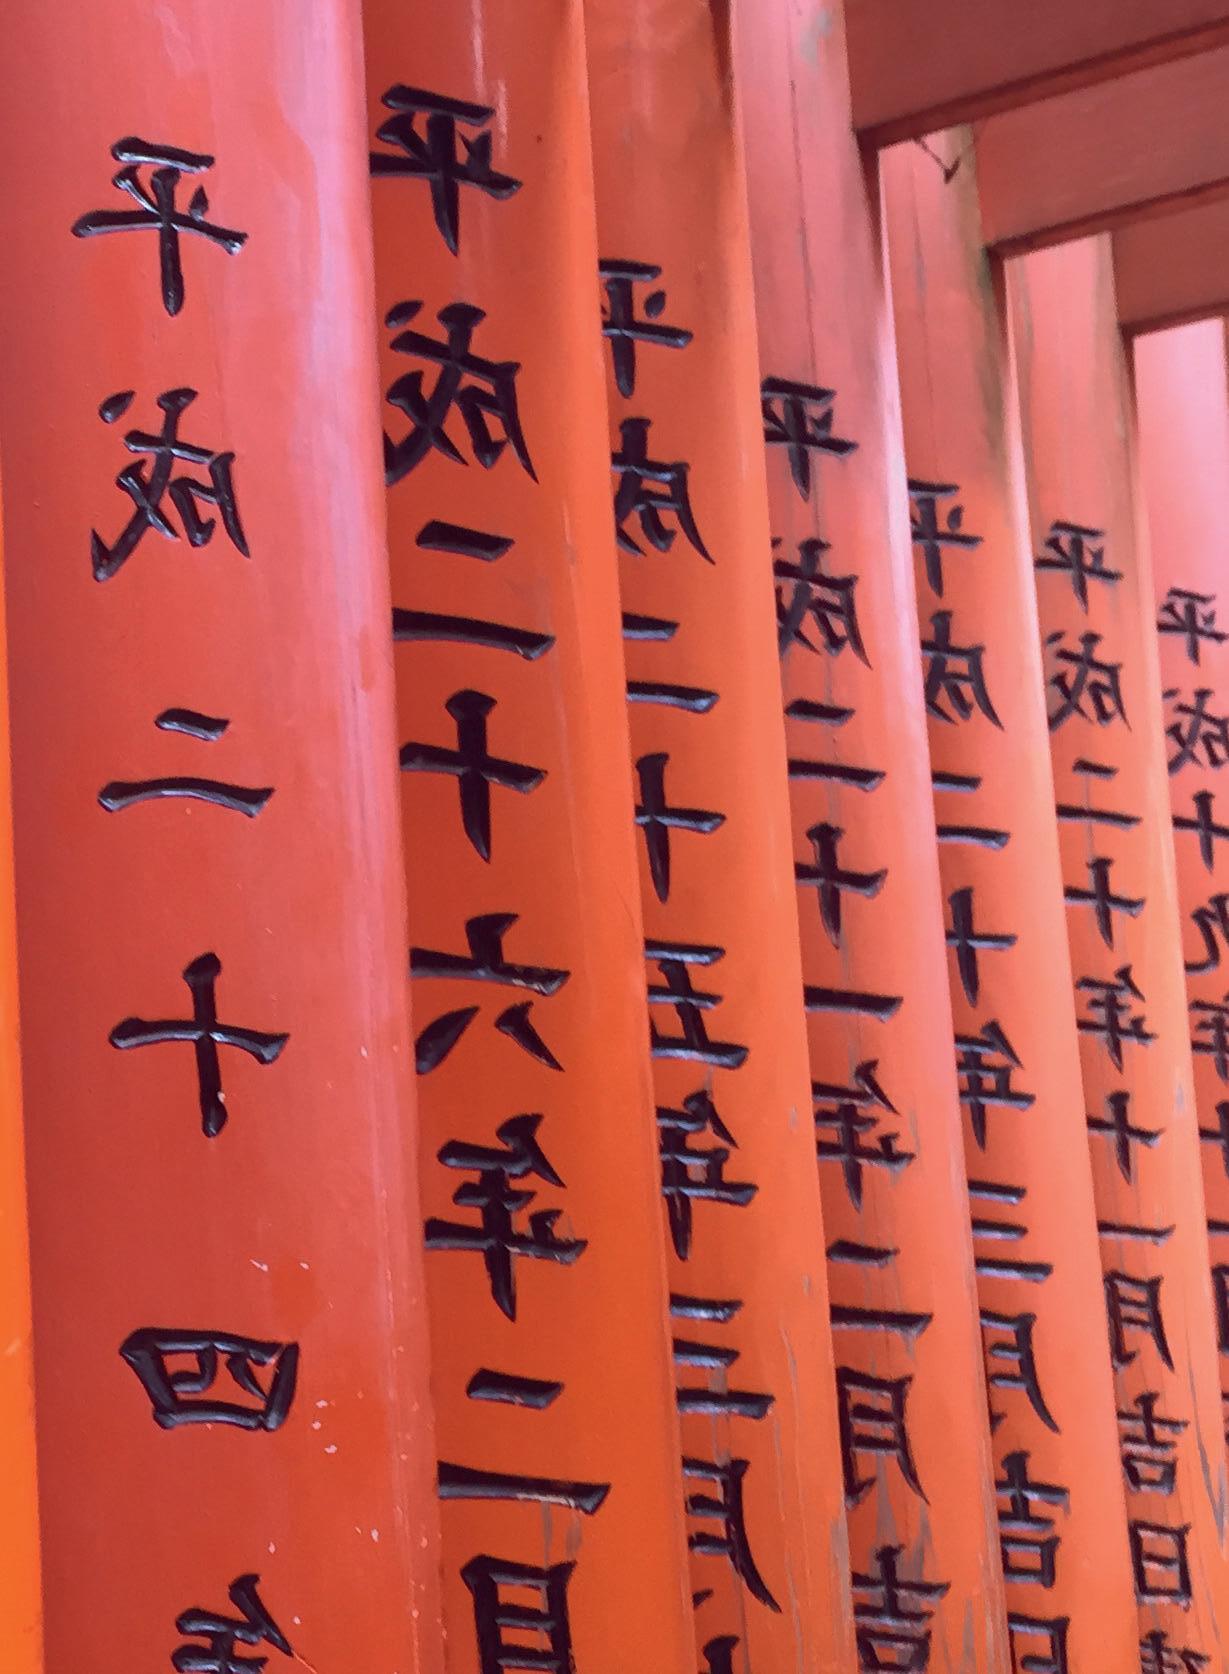 平成二十四年
平成二十六年二月
平成二十五年三月
平成二十一年二月吉
平成二十年三月吉日
平成二十年十一月吉日
平成十九年十